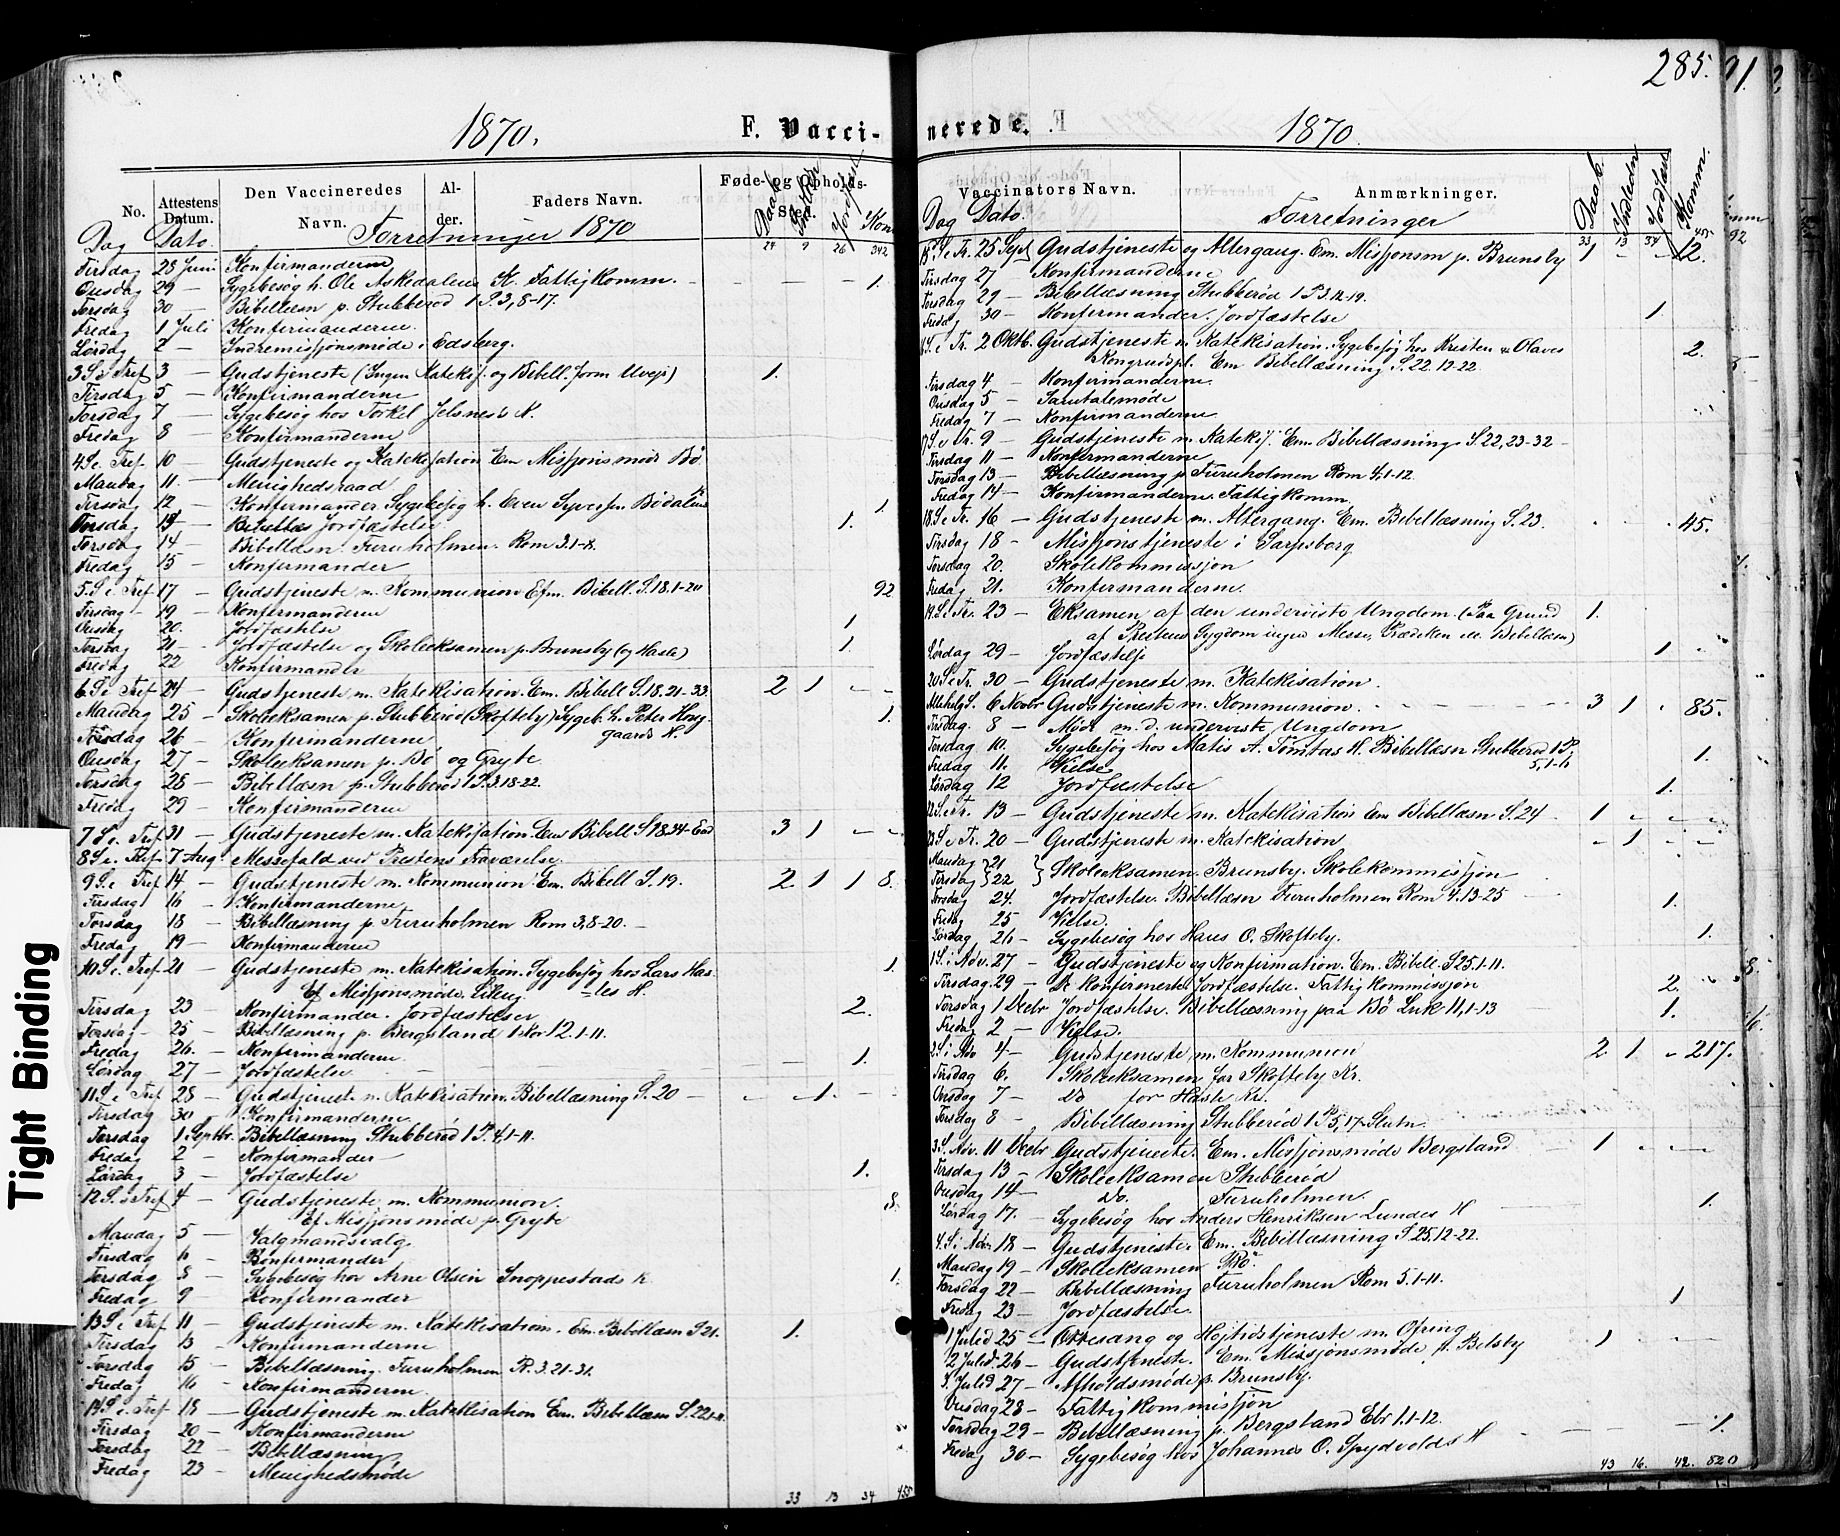 285.
1870. F. Vacci-
No. Attestens Datum. Den Vaccineredes Navn. Al- der. Faders Navn. Føde- og Opholds- Sted.
Dag Dato Forretninger 1870 Daab Indledn Jordfæst Kom
24 9 26 342
Tirsdag 28 Juni Konfirmanderne
Onsdag 29 — Sygebesøg h. Ole Askedalens K. Fattigkomm. — — — 1.
Torsdag 30 — Bibellæsn p. Stubberød 1 P. 3, 8-17.
Fredag 1 Juli Konfirmanderne
Lørdag 2 — Indremissjonsmøde i Edsberg.
3 S. e Tref 3 — Gudstjeneste (Ingen Katekis. og Bibell. form Uvejr) 1.
Tirsdag 5 — Konfirmanderne
Torsdag 7 — Sygebesøg hos Torkel Jelsnes's K.
Fredag 8 — Konfirmanderne
4 S. e. Tref. 10 — Gudstjeneste og Katekisation Em Missjonsmøde Bø
Mandag 11 — Menighedsraad
Tirsdag 12 — Konfirmander Sygebesøg h. Even Syversen Bødalens K 1
Torsdag 13 — Jordfæstelse 1.
Torsdag 14 — Bibellæsn. Furuholmen. Rom 3.1-8.
Fredag 15 — Konfirmander
5. S. e Tref 17 — Gudstjeneste m. Kommunion Efm. Bibell. S. 18. 1-20 92
Tirsdag 19 — Konfirmanderne
Onsdag 20. Jordfæstelse 1
Torsdag 21 — Jordfæstelse og Skoleeksamen p. Brunsby (og Hasle) 1.
Fredag 22 Konfirmander
6 S. e Tref 24 — Gudstjeneste m. Katekisation. Em. Bibell S. 18. 21-33 2 1 — —
Mandag 25 — Skoleeksamen p. Stubberød (Skofteby) Sygeb. h. Peter Houg- 1.
gaards K.
Tirsdag 26 — Konfirmanderne
Onsdag 27 — Skoleeksamen p. Bø og Gryte
Torsdag 28 — Bibellæsn p. Stubberød 1 P. 3. 18-22.
Fredag 29 — Konfirmanderne
7 S. e. Tref 31 — Gudstjeneste m. Katekisation. Em Bibell S 18. 34-End 3 1 — —
8 S. e. Tref 7 Aug. Messefald ved Prestens Fraværelse.
9 S. e Tref 14 — Gudstjeneste m. Kommunion Em. Bibell S. 19. 2 1 1 8.
Tirsdag 16 — Konfirmanderne
Torsdag 18 — Bibellæsning p. Furuholmen Rom 3, 8-20. —
Fredag 19 — Konfirmanderne
10 S. e. Tref 21 — Gudstjeneste m. Katekisation. Sygebesøg hos Lars Has- 1.
Ef Missjonsmøde les K.
Tirsdag 23 — Konfirmander. Jordfæstelser 2.
Torsdag 25 — Bibellæsning p. Bergsland 1 Kor 12. 1-11.
Fredag 26. — Konfirmanderne.
Lørdag 27 — Jordfæstelse — 1.
11 S. e Tref 28 — Gudstjeneste m. Katekisation. Bibellæsning S. 20 — — — 1. —
Tirsdag 30 — Konfirmanderne
Torsdag 1 Septbr. Bibellæsning Stubberød 1 P. 4, 1-11.
Fredag 2 — Konfirmander
Lørdag 3 — Jordfæstelse 1.
12 S. e Tref 4 — Gudstjeneste m. Kommunion.
Ef Missjonsmøde p. Gryte
Mandag 5 — Valgmandsvalg.
Tirsdag 6 — Konfirmander
Torsdag 8 — Sygebesøg hos Arne Olsen Snoppestads K. 1.
Fredag 9 — Konfirmander
13 S. e Tref 11 — Gudstjeneste m. Katekisation. Em. Bibellæsn S 21. 1.
Tirsdag 13 — Konfirmanderne
Torsdag 15 — Bibellæsning. Furuholmen R. 3. 21-31.
Fredag 16 — Konfirmanderne.
14 S. e. Tref 18 — Gudstjeneste m. Katekisation Em. Bibellæsn S. 22.1-11
Tirsdag 20 — Konfirmanderne
Torsdag 22 — Bibellæsning
Fredag 23 — Menighedsmøde
33 13 34 455
nerede. 1870.
Vaccinators Navn. Anmærkninger.
Dag Dato. Forretninger Daab. Indledn Jordfæst Komm.
33 13 34 455
15 S. e Tr. 25 Sept Gudstjeneste og Altergang. Em. Missjonsm p. Brunsby 1 — — 12.
Tirsdag 27 Konfirmanderne
Torsdag 29 — Bibellæsning Stubberød 1 P. 3. 12-19.
Fredag 30 — Konfirmander. Jordfæstelse 1
16 S. e Tr. 2 Oktb. Gudstjeneste m. Katekisation. Sygebesøg hos Kristen & Olaves 2.
Kongrudspl. Em Bibellæsning S. 22. 12-22.
Tirsdag 4 — Konfirmanderne.
Onsdag 5 — Samtalemøde
Fredag 7 — Konfirmanderne
17 S. e Tr. 9 — Gudstjeneste m. Katekis. Em. Bibellæsning S. 22, 23-32 —
Tirsdag 11 — Konfirmanderne
Torsdag 13 — Bibellæsning p. Furuholmen Rom 4, 1-12.
Fredag 14 — Konfirmanderne. Fattigkomm
18. S. e Tr. 16 — Gudstjeneste m. Altergang. Em. Bibellæsning S. 23. 45.
Tirsdag 18 — Missjonstjeneste i Sarpsborg
Torsdag 20. Skolekommissjon
Fredag 21. Konfirmanderne.
19. S. e Tr. 23 — Eksamen af den underviste Ungdom. (Paa Grund 1.
af Prestens Sygdom ingen Messe, Prædiken ell. Bibellæsn)
Lørdag 29 — Jordfæstelse 1
20 S. e Tr. 30 — Gudstjeneste m. Katekisation.
Allehelg S. 6 Novbr Gudstjeneste m. Kommunion. 3 1 . 85.
Tirsdag. 8 — Møde m. d. underviste Ungdom
Torsdag 10. Sygebesøg hos Matis A. Tomtas K. Bibellæsn Stubberød 1 P. 1.
5, 1-11
Fredag 11. Vielse
Lørdag 12 Jordfæstelse 1.
22 S. e Tr. 13 — Gudstjeneste m. Katekisation Em Bibellæsn S. 24 1 — — —
23 S. e Tr. 20 — Gudstjeneste m. Katekisation — 1 — —
Mandag 21
Tirsdag 22 Skoleeksamen. Brunsby. Skolekommissjon
Torsdag 24. Jordfæstelse. Bibellæsn Furuholmen Rom 4. 13-25 1.
Fredag 25 Vielse
Lørdag 26 — Sygebesøg hos Hans O. Skofteby. 1.
1 S. i Adv. 27 — Gudstjeneste og Konfirmation. Em. Bibell. S 25. 1-11.
Tirsdag. 29 — De konfirmerte. Jordfæstelse. Fattigkommissjon 2.
Torsdag 1 Decbr Jordfæstelse. Bibellæsning paa Bø Luk 11, 1-13 1.
Fredag 2 — Vielse.
2 S. i Adv 4 — Gudstjeneste m. Kommunion 2 1. — 217.
Tirsdag 6. Skoleeksamen for Skofteby Kr.
Onsdag 7 — Do for Hasle Kr.
Torsdag 8 — Bibellæsning Stubberød 1 P 5, 17-Slutn.
3 S. Adv. 11 Decbr Gudstjeneste. Em. Missjonsmøde Bergsland 1 — —
Tirsdag 13 — Skoleeksamen Stubberød
Onsdag 14 — Do. Furuholmen.
Lørdag 17. — Sygebesøg hos Anders Henriksen Lundes K 1.
4. S i Adv. 18 — Gudstjeneste. Em. Bibellæsning S 25, 12-22.
Mandag 19 — Skoleeksamen Bø
Torsdag 22 — Bibellæsning Furuholmen Rom 5. 1-11.
Fredag 23 — Jordfæstelse 1
1 Juled 25 — Ottesang og Højtidstjeneste m. Ofring 1
2 Juled. 26 — Gudstjeneste. Em. Missjonsmøde p. Belsby
3. Juled 27 — Afholdsmøde p. Brunsby.
Onsdag 28 — Fattigkommissjon
Torsdag 29 — Bibellæsning p. Bergsland Ebr 1. 1-12.
Fredag 30 — Sygebesøg hos Johannes O. Spydvolds K — — — 1.
43 16. 42. 820
Tight Binding